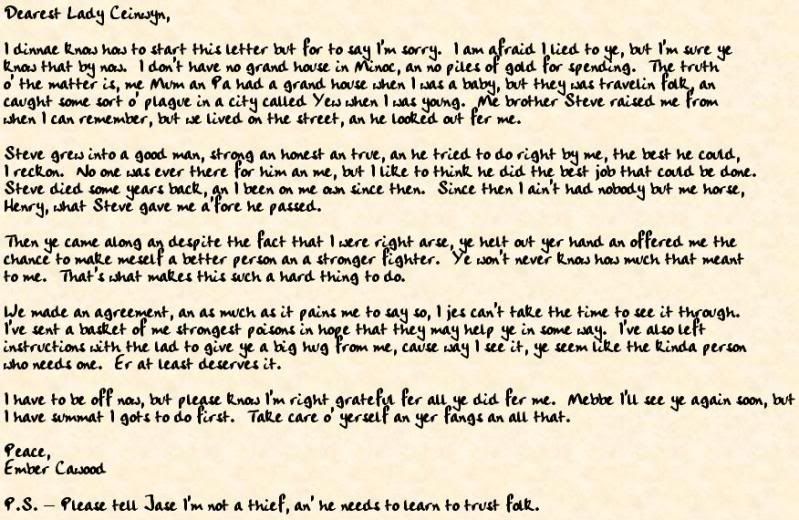 Dearest Lady Ceinwyn,
I dinnae know how to start this letter but for to say I'm sorry. I am afraid I lied to ye, but I'm sure ye
know that by now. I don't have no grand house in Minoc, an no piles of gold for spending. The truth
o' the matter is, me Mum an Pa had a grand house when I was a baby, but they was travelin folk, an
caught some sort o' plague in a city called Yew when I was young. Me brother Steve raised me from
when I can remember, but we lived on the street, an he looked out fer me.
Steve grew into a good man, strong an honest an true, an he tried to do right by me, the best he could,
I reckon. No one was ever there for him an me, but I like to think he did the best job that could be done.
Steve died some years back, an I been on me own since then. Since then I ain't had nobody but me horse,
Henry, what Steve gave me a'fore he passed.
Then ye came along an despite the fact that I were right arse, ye helt out yer hand an offered me the
chance to make meself a better person an a stronger fighter. Ye won't never know how much that meant
to me. That's what makes this such a hard thing to do.
We made an agreement, an as much as it pains me to say so, I jes can't take the time to see it through.
I've sent a basket of me strongest poisons in hope that they may help ye in some way. I've also left
instructions with the lad to give ye a big hug from me, cause way I see it, ye seem like the kinda person
who needs one. Er at least deserves it.
I have to be off now, but please know I'm right grateful fer all ye did fer me. Mebbe I'll see ye again soon, but
I have summat I gots to do first. Take care o' yerself an yer fangs an all that.
Peace,
Ember Cawood
P.S. – Please tell Jase I'm not a thief, an' he needs to learn to trust folk.